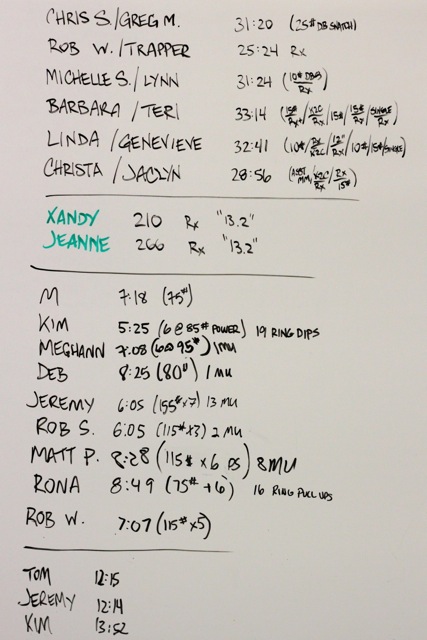 CHRIS S./GREG M. 31:20 (25# DB SNATCH)
ROB W./TRAPPER 25:24 Rx
MICHELLE S./LYNN 31:24 (10# DBS/Rx)
BARBARA/TERI 33:14
LINDA/GENEVIEVE 32:41
CHRISTA/JACLYN 28:56
XANDY 210 Rx "13.2"
JEANNE 266 Rx "13.2"
M 7:18 (75#)
KIM 5:25 (6@85# POWER) 19 RING DIPS
MEGHANN 7:08 (6@95#) 1MU
DEB 8:25 (80#) 1 MU
JEREMY 6:05 (155#x7) 13 MU
ROB S. 6:05 (115#x3) 2 MU
MATT P. 8:28 (115# x 6 PS) 8MU
RONA 8:49 (75# +6) 16 RING PULL UPS
ROB W. 7:07 (115#x5)
TOM 12:15
JEREMY 12:14
KIM 13:52